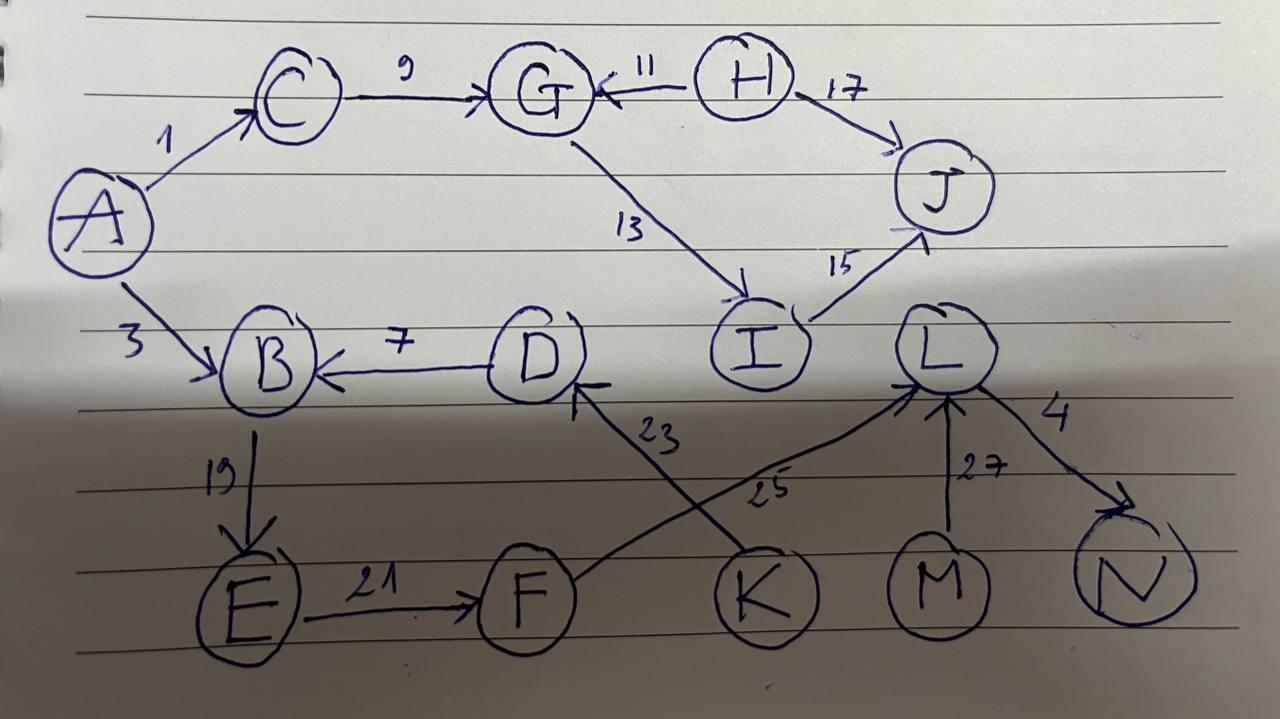 C 9 G 11 H 17
1
A J
13
15
3 B 7 D I L
23 4
19 25 27
E 21 F K M N